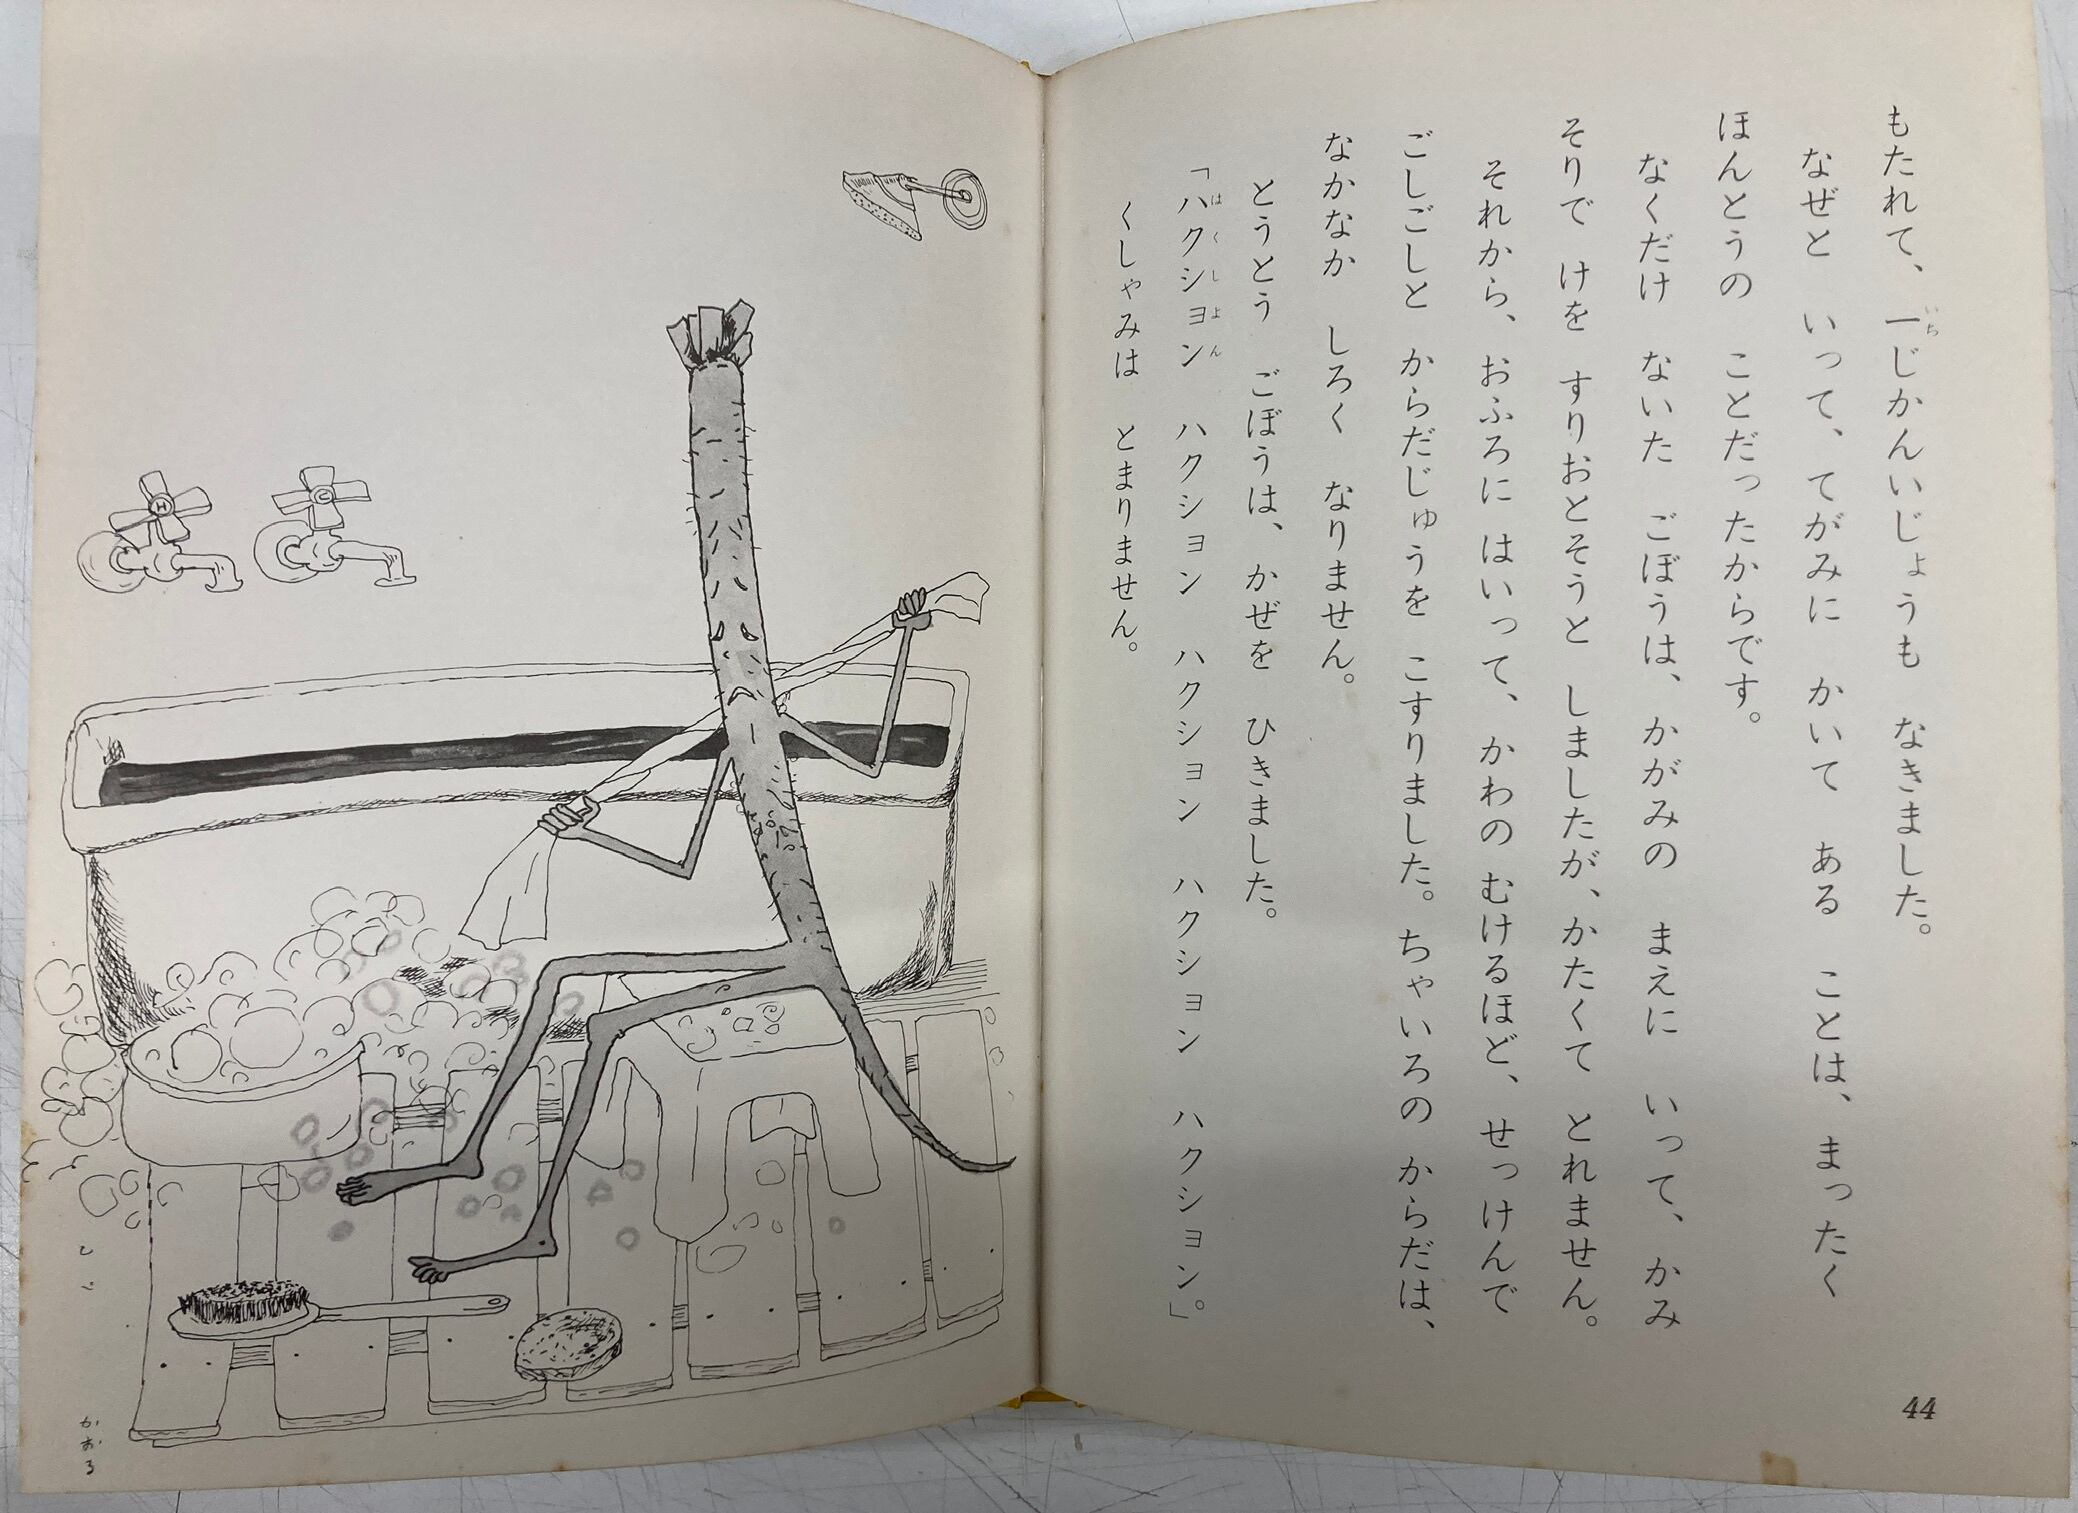 もたれて、一じかんいじょうも なきました。
なぜと いって、てがみに かいて ある ことは、まったく
ほんとうの ことだったからです。
なくだけ ないた ごぼうは、かがみの まえに いって、かみ
そりで けを すりおとそうと しましたが、かたくて とれません。
それから、おふろに はいって、かわの むけるほど、せっけんで
ごしごしと からだじゅうを こすりました。ちゃいろの からだは、
なかなか しろく なりません。
とうとう ごぼうは、かぜを ひきました。
「ハクション ハクション ハクション ハクション ハクション。」
くしゃみは とまりません。
いち
はくしよん
44
H
C
かおる